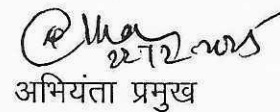 22-12-2025
अभियंता प्रमुख